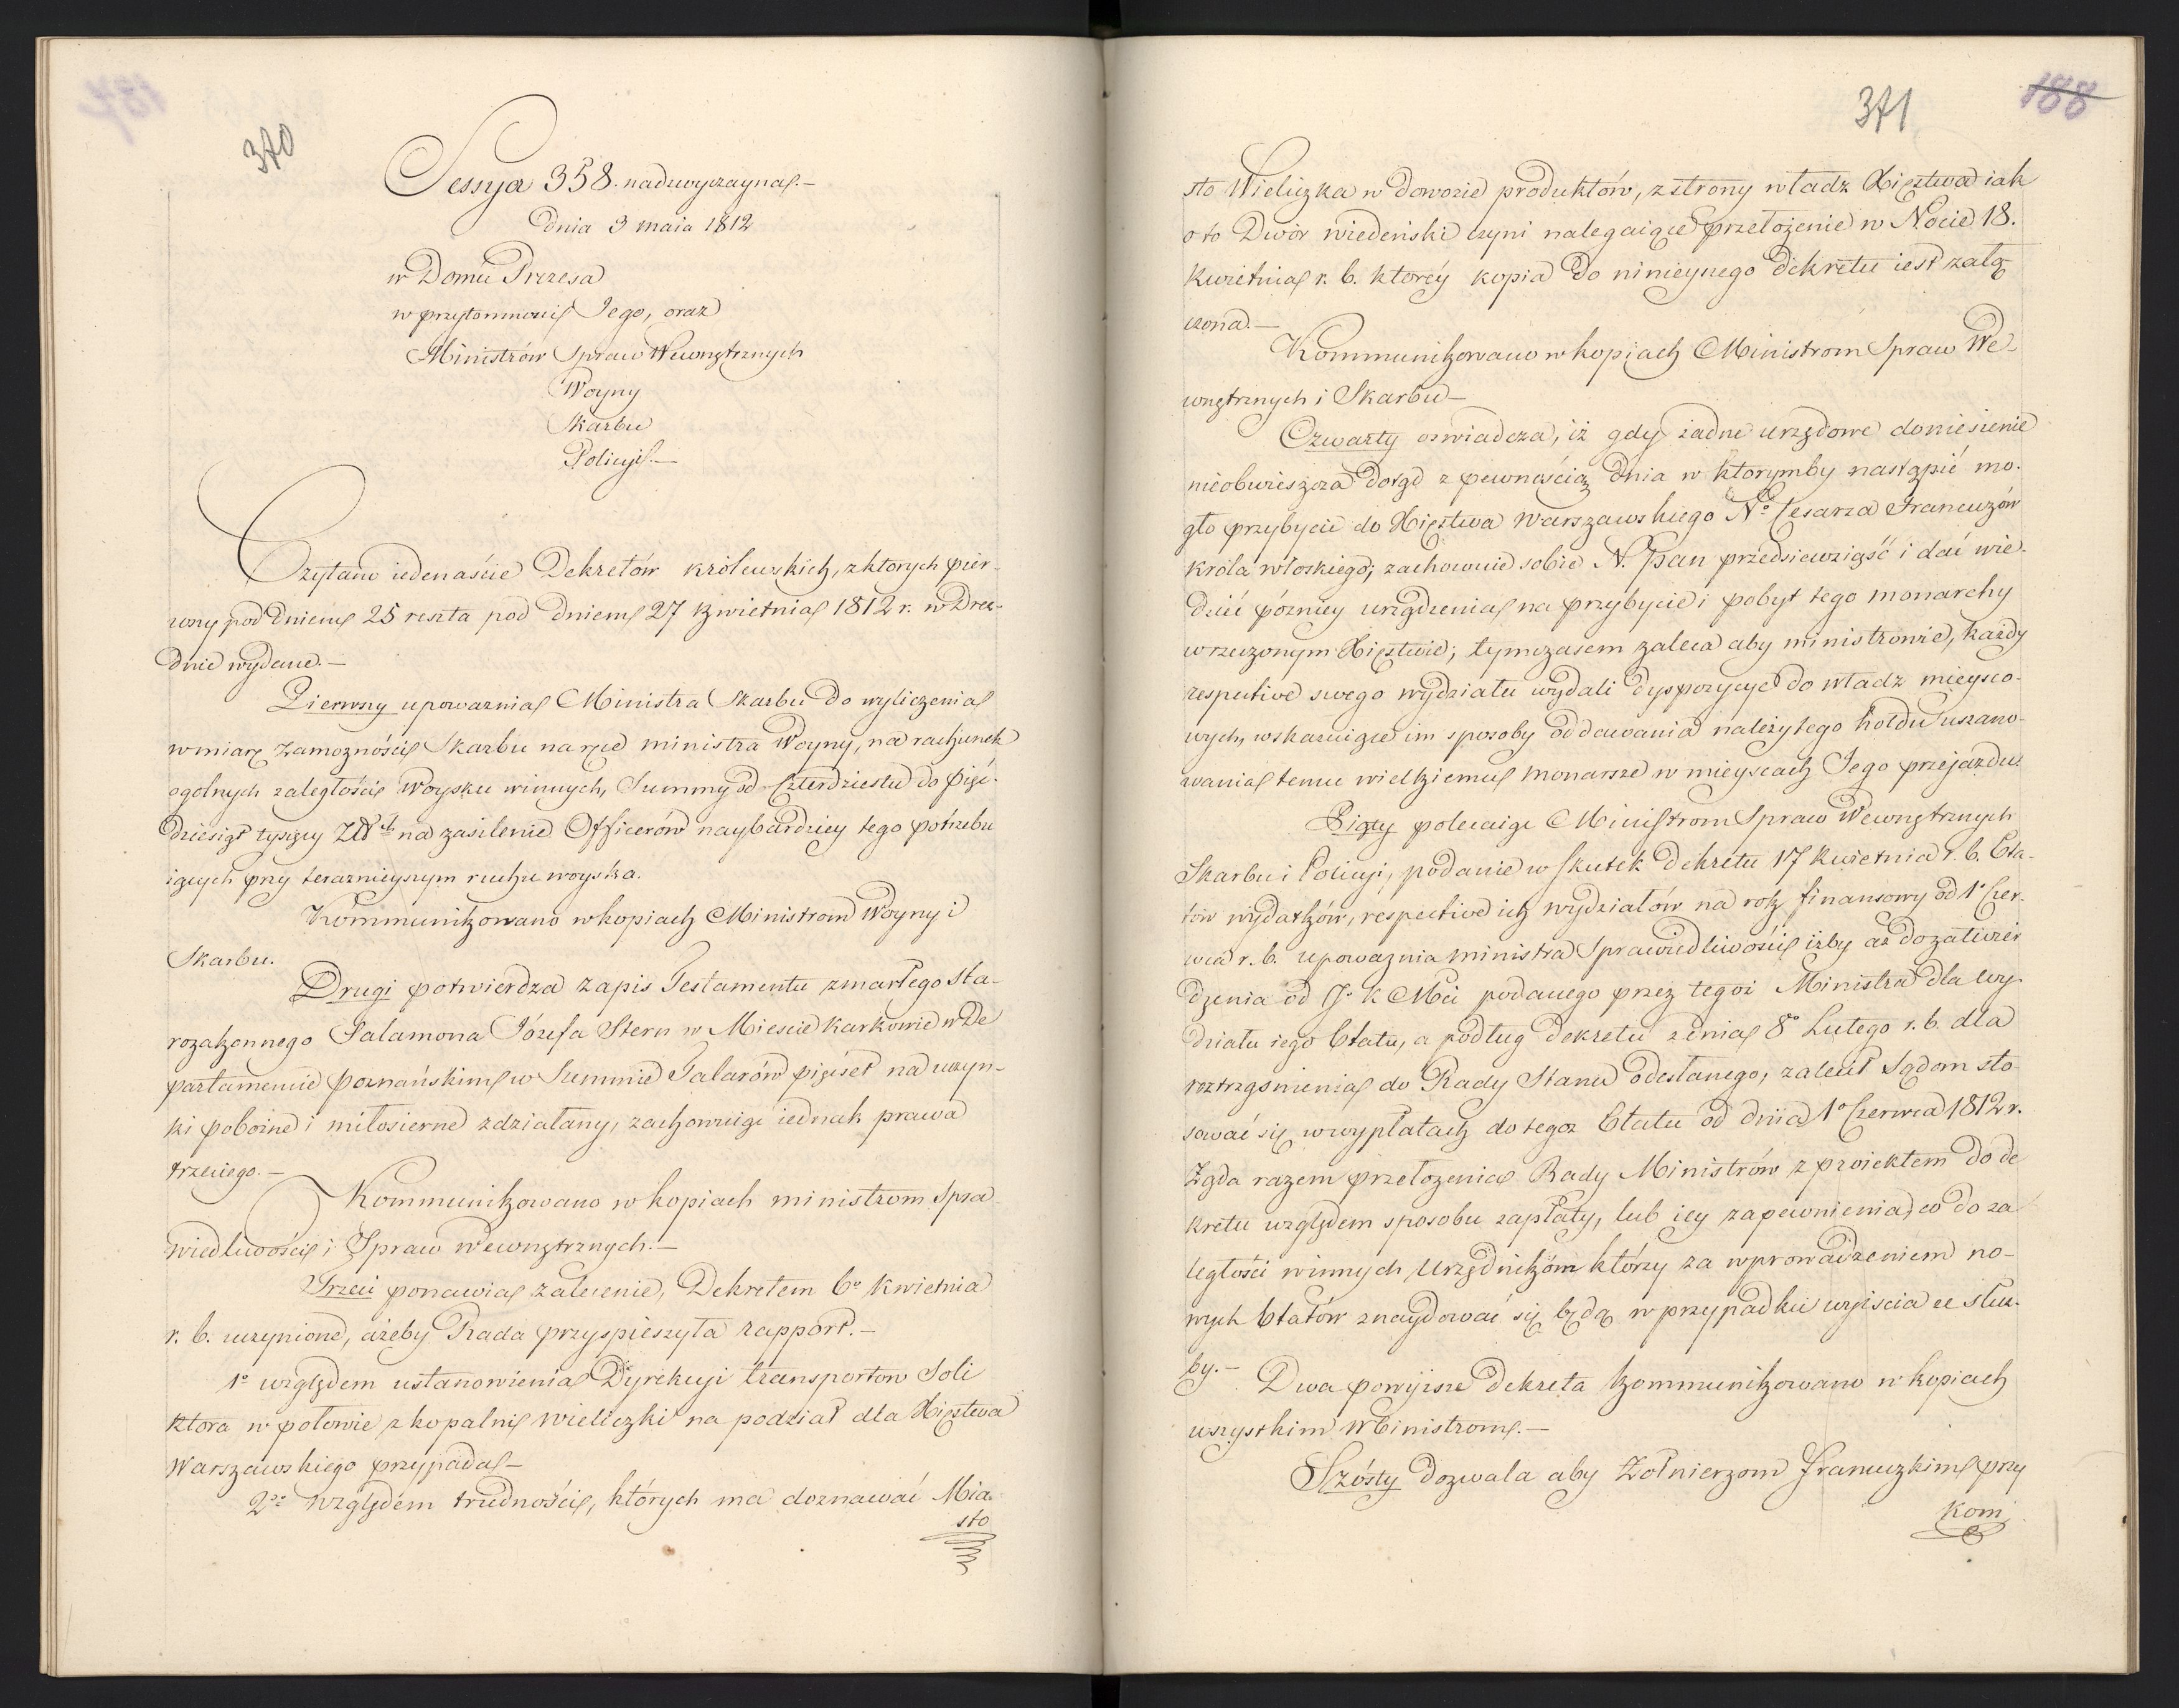 370
Sessya 358. nadzwyczayna.—
Dnia 3 maia 1812
w Domu Prezesa
w przytomności Jego, oraz
Ministrów Spraw Wewnętrznych
Woyny
Skarbu
Policyi.—
Czytano iedenaście Dekretów królewskich, z ktorych pier-
wszy pod Dniem 25 reszta pod Dniem 27 kwietnia 1812 r. w Drez-
dnie wydane.—
Pierwszy upoważnia Ministra Skarbu do wyliczenia
w miarę zamożności Skarbu na ręce ministra Woyny, na rachunek
ogolnych zaległości Woysku winnych, Summy od Czterdziestu do pięć-
dziesiąt tysięcy Złt na zasilenie Officerów naybardziey tego potrzebu
iących przy teraznieyszym ruchu woyska.
Kommunikowano w kopiach Ministrom Woyny i
Skarbu.
Drugi potwierdza zapis Testamentu zmarłego sta-
rozakonnego Salamona Józefa Stern w Mieście Karkowie w De
partamencie poznańskim w Summie Talarów pięćset na uczyn-
ki pobożne i miłosierne zdziałany, zachowuiąc iednak prawa
trzeciego.—
Kommunikowano w kopiach ministrom Spra-
wiedliwości i Spraw wewnętrznych.—
Trzeci ponawia zalecenie, Dekretem 6º kwietnia
r. b. uczynione, ażeby Rada przyspieszyła rapport.—
1º względem ustanowienia Dyrekcyi transportow Soli
ktora w połowie z kopalni Wieliczki na podział dla Xięstwa
Warszawskiego przypada—
2do względem trudności, których ma doznawać Mia-
sto
371
188
sto Wieliczka w dowozie produktów, z strony władz Xięstwa iak
oto Dwór wiedeński czyni nalegaiące przełożenie w Nocie 18.
Kwietnia r. b. którey kopia do ninieyszego dekretu iest załą
czona.—
Kommunikowano w kopiach Ministrom Spraw We-
wnętrznych i Skarbu—
Czwarty oswiadcza, iż gdy żadne urzędowe doniesienie
nieobwieszcza dotąd z pewnością dnia w ktorymby nastąpić mo-
gło przybycie do Xięstwa Warszawskiego Nº Cesarza Francuzów
króla włoskiego; zachowuie sobie N. Pan przedsiewziąść i dać wie-
dzieć pózniey urządzenia na przybycie i pobyt tego monarchy
w rzeczonym Xięstwie; tymczasem zaleca aby ministrowie, każdy
respective swego wydziału wydali dyspozycye do władz mieysco-
wych, wskazuiące im sposoby oddawania należytego hołdu uszano-
wania temu wielkiemu monarsze w mieyscach Jego przejazdu.
Piąty polecaiąc Ministrom Spraw Wewnętrznych
Skarbu i Policyi, podanie w skutek Dekretu 17 kwietnia r. b. Eta-
tów wydatków, respective ich wydziałów na rok finansowy od 1º Czer-
wca r. b. upoważnia ministra Sprawiedliwości iżby aż do zatwier
dzenia od J. K Mci podanego przez tegoż Ministra dla wy-
działu iego Etatu, a podług Dekretu z dnia 8º Lutego r. b. dla
roztrząśnienia do Rady Stanu odesłanego, zalecił Sądom sto-
sować się w wypłatach do tegoż Etatu od dnia 1º Czerwca 1812 r.
Żąda razem przełożenia Rady Ministrów z proiektem do de
kretu względem sposobu zapłaty, lub iey zapewnienia, co do za
ległości winnych Urzędnikóm którzy za wprowadzeniem no-
wych Etatów znaydować się będą w przypadku wyiscia ze służ-
by.—
Dwa powyższe dekreta kommunikowano w kopiach
wszystkim Ministrom.—
Szósty dozwala aby Żołnierzom francuzkim przy
kom